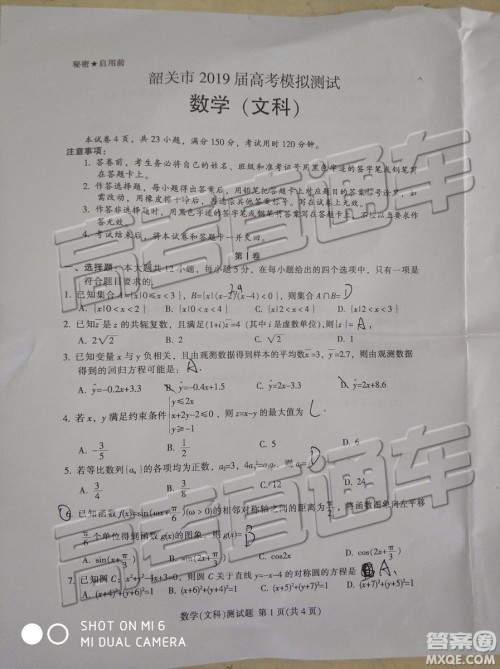 秘密★启用前
韶关市 2019 届高考模拟测试
数学（文科）
本试卷 4 页，共 23 小题，满分 150 分，考试用时 120 分钟。
注意事项：
1. 答卷前，考生务必将自己的姓名、班级和准考证号用黑色字迹的签字笔或钢笔写
在答题卡上。
2. 作答选择题，每小题得出答案后，用铅笔把答题卡上对应题目的答案信号涂黑，如
需改动，用橡皮擦干净后，再选涂其他答案信号。写在试卷上无效。
3. 作答非选择题时，用黑色字迹的签字笔或钢笔将答案写在答题卡上，不按以上要求作
答无效。
4. 考试结束后，将本试卷和答题卡一并交回。
第 Ⅰ 卷
一、选择题：本大题共 12 小题，每小题 5 分，在每小题给出的四个选项中，只有一项是
符合题目要求的。
1. 已知集合 A={x|0≤x<3}，B={x|(x-2)(x-4)<0}，则集合 A∩B= D
A. {x|0<x<2} B. {x|0<x<4} C. {x|2<x<4} D. {x|2<x<3}
2. 已知z̄是 z 的共轭复数，且满足(1+i)z̄=4 (其中 i 是虚数单位)，则|z|= A
A. 2√2 B. 2 C. √2 D. 1
3. 已知变量 x 与 y 负相关，且由观测数据得到样本的平均数x̄=3，ȳ=2.7，则由观测数据
得到的回归方程可能是： A
A. ŷ=-0.2x+3.3 B. ŷ=-0.4x+1.5 C. ŷ=2x-3.3 D. ŷ=-2x+8.6
4. 若 x，y 满足约束条件 {y≤2x, x+2y-2≤0, y≥-1，则 z=x-y 的最大值为 C
A. -3/5 B. 1/2 C. 5 D. 6
5. 若等比数列{aₙ}的各项均为正数，a₂=3，
A. 3/4 B. 3/8 C. 12 D. 24
6. 已知函数 f(x)=sin(ωx+π/6)(ω>0)的相邻对称轴之间的距离为π/2，将函数图象向左平移
π/6个单位得到函数 g(x)的图象，则 g(x)= D
A. sin(x+π/3) B. sin(2x+π/3) C. cos2x D. cos(2x+π/3)
7. 则圆 C 关于直线 y=-x-4 的对称圆的方程是 A
A. (x+4)²+(y+6)²=1 B. (x+6)²+(y+4)²=1 C. (x+5)²+(y+7)²=1 D. (x+7)²+(y+5)²=1
数学(文科)测试题 第 1 页(共 4 页)
高考直通车
高考直通车
高考直通车
SHOT ON MI 6
MI DUAL CAMERA
答案圈
MXQE.COM